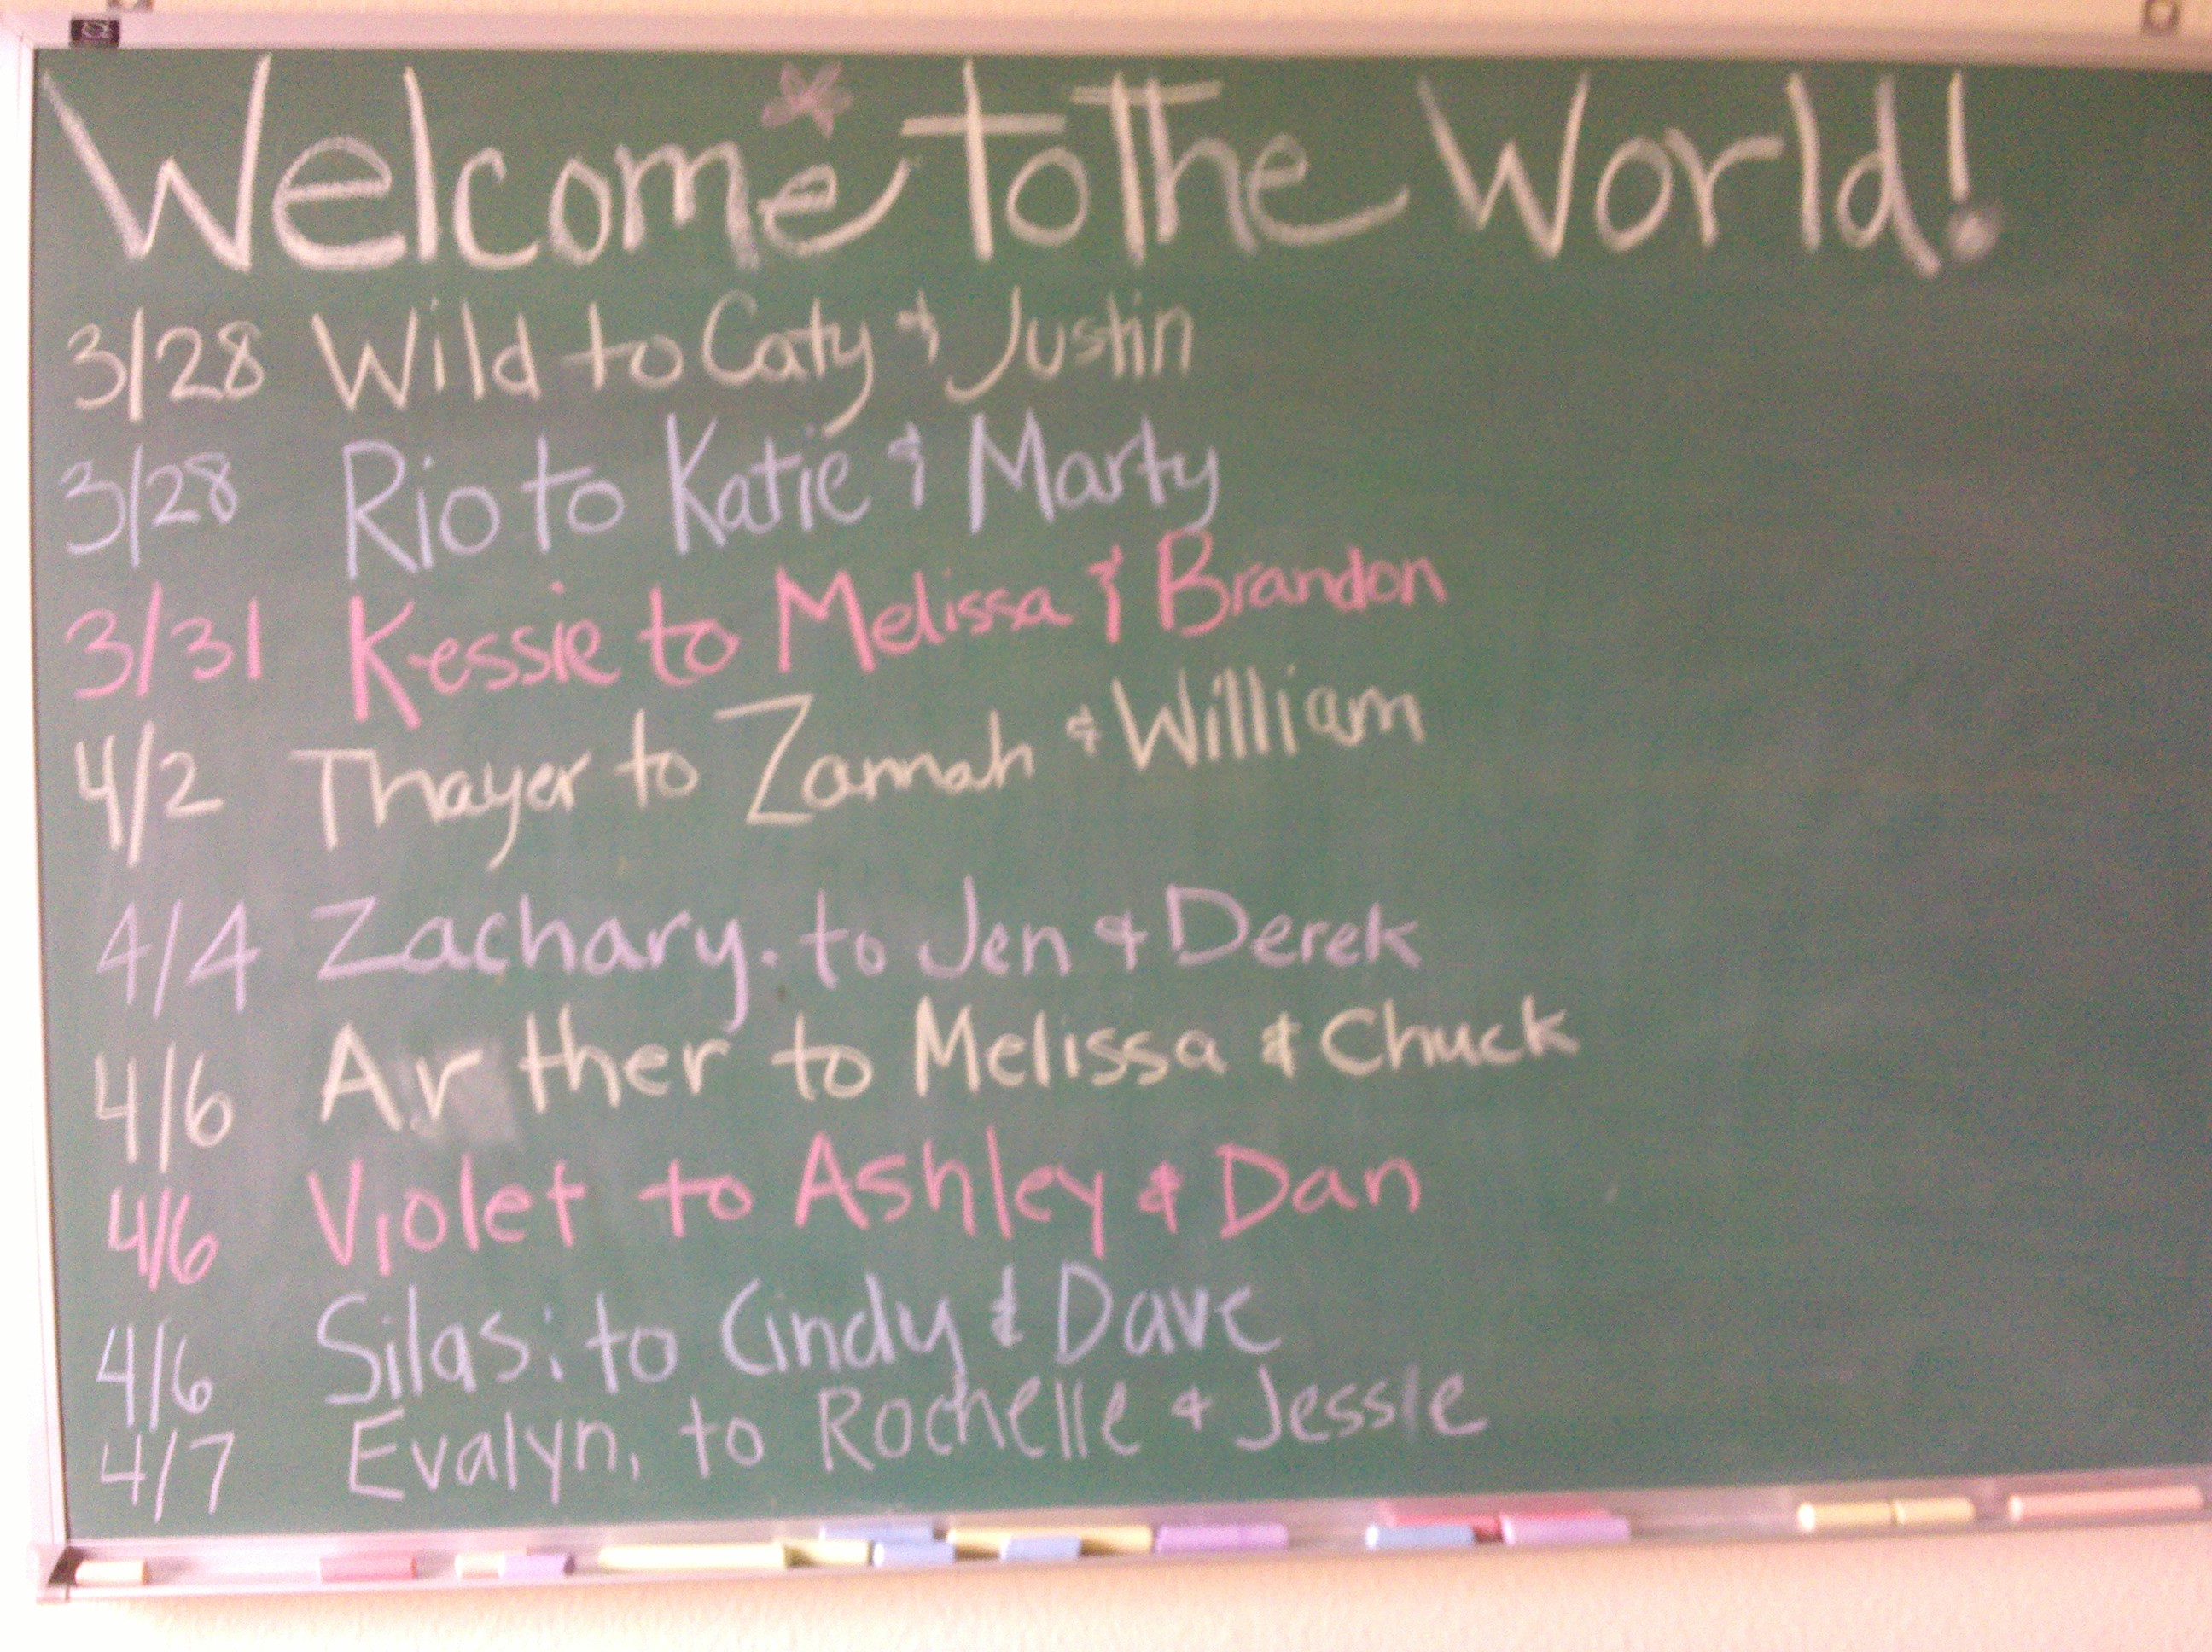 Welcome to The World!
3/28 Wild to Caty & Justin
3/28 Rio to Katie & Marty
3/31 Kessie to Melissa & Brandon
4/2 Thayer to Zannah & William
4/4 Zachary. to Jen & Derek
4/6 Ar ther to Melissa & Chuck
4/6 Violet to Ashley & Dan
4/6 Silas: to Cindy & Dave
4/7 Evalyn, to Rochelle & Jessie